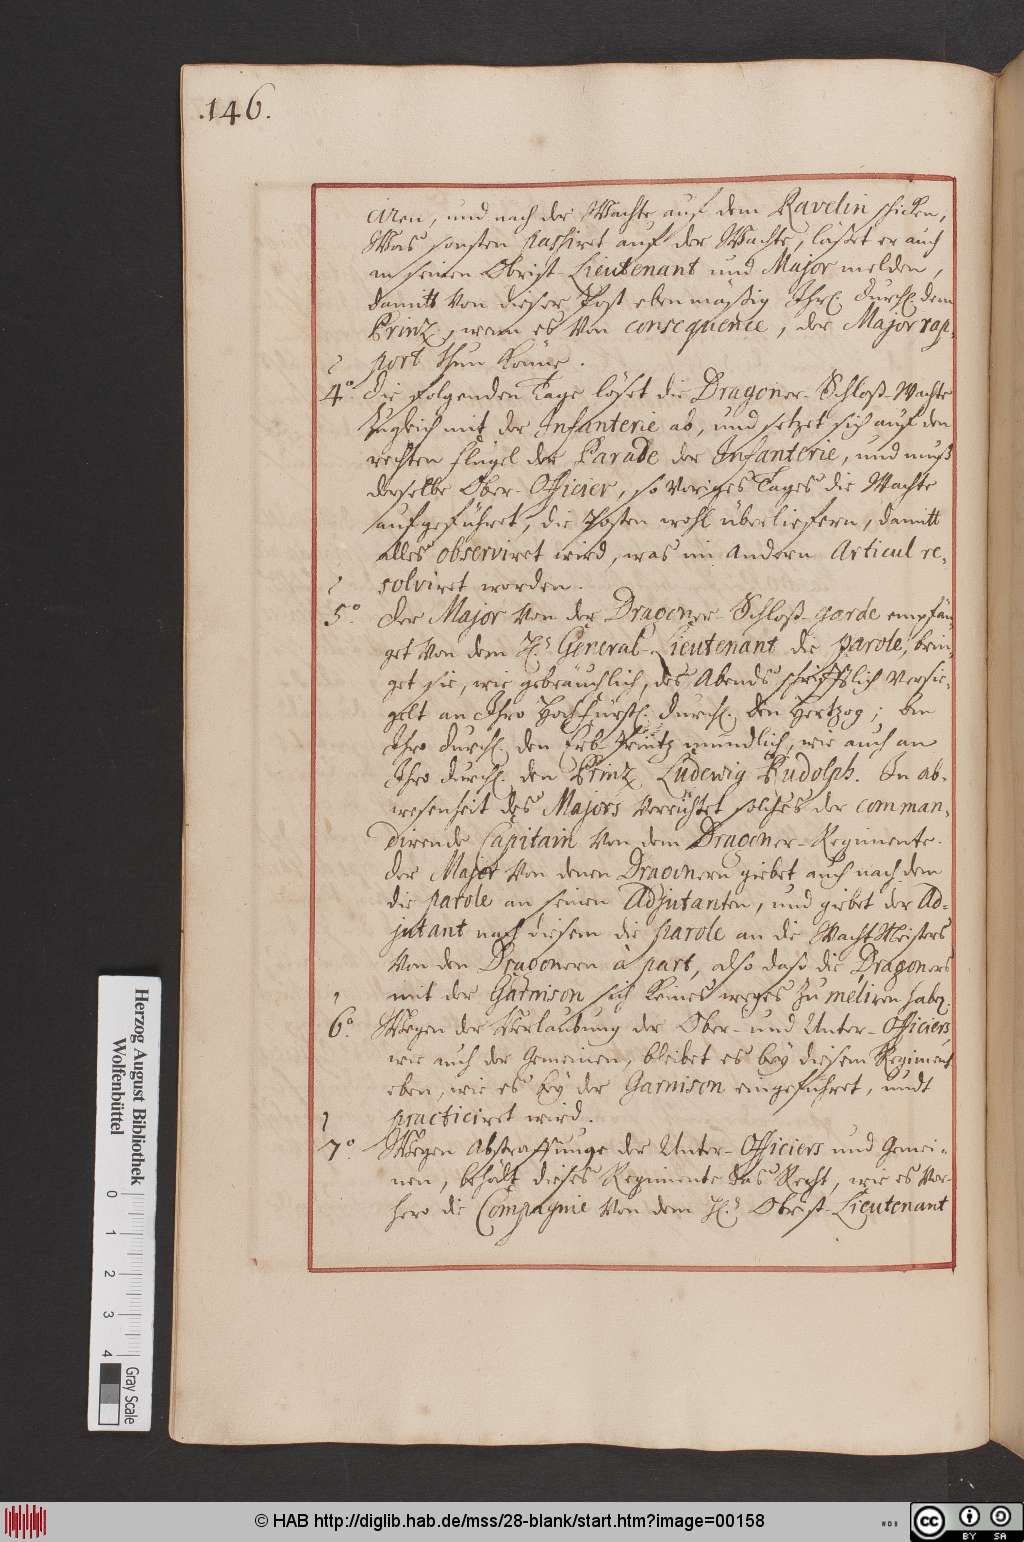 .146.
ciren, und nach der Wachte auf dem Ravelin schicken,
Was sonsten passiret auf der Wachte, läßet er auch
an seinen Obrist-Lieutenant und Major melden,
damitt von dieser Post ebenmäßig Ihr. Durchl. dem
Prinz, wenn es von consequence, der Major rap-
port thun könne.
4º. Die folgenden Tage löset die Dragoner-Schloß-Wachte
zugleich mit der Infanterie ab, und setzet sich auf den
rechten flügel der Parade der Infanterie, und muß
derselbe Ober-Officier, so voriges Tages die Wachte
aufgeführet, die Posten wohl überliefern, damitt
alles observiret wird, was im andern Articul re-
solviret worden.
5º. Der Major von der Dragoner-Schloß-garde empfän-
get von dem H. General-Lieutenant die parole, brin-
get sie, wie gebräuchlich, des Abends schrifftlich versie-
gelt an Ihro Hochfürstl. Durchl. den Hertzog; bey
Ihro Durchl. den Erb-Printz mündlich, wie auch an
Ihro Durchl. den Prinz Ludewig Rudolph. In ab-
wesenheit des Majors verrichtet solches der comman-
dirende Capitain von dem Dragoner-Regimente.
Der Major von denen Dragonern giebet auch nach dem
die parole an seinen Adjutanten, und giebet der Ad-
jutant nach diesem die parole an die WachtMeisters
von den Dragonern à part, also daß die Dragoners
mit der Garnison sich keines weges zu meliren haben.
6º. Wegen der Verlaubung der Ober- und Unter-Officiers,
wie auch der Gemeinen, bleibet es bey diesem Regiment
eben, wie es bey der Garnison eingeführet, undt
practiciret wird.
7º. Wegen Abstraffunge der Unter-Officiers und Gemei-
nen, behält dieses Regimente das Recht, wie es vor-
hero die Compagnie von dem H. Obrist-Lieutenant
Herzog August Bibliothek
Wolfenbüttel
0 1 2 3 4
Gray Scale
© HAB http://diglib.hab.de/mss/28-blank/start.htm?image=00158
WDB
cc BY SA